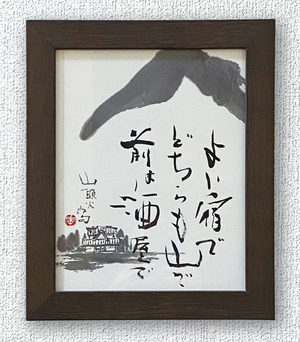 よい宿で
どちらも山で
前は酒屋で
山頭火の句